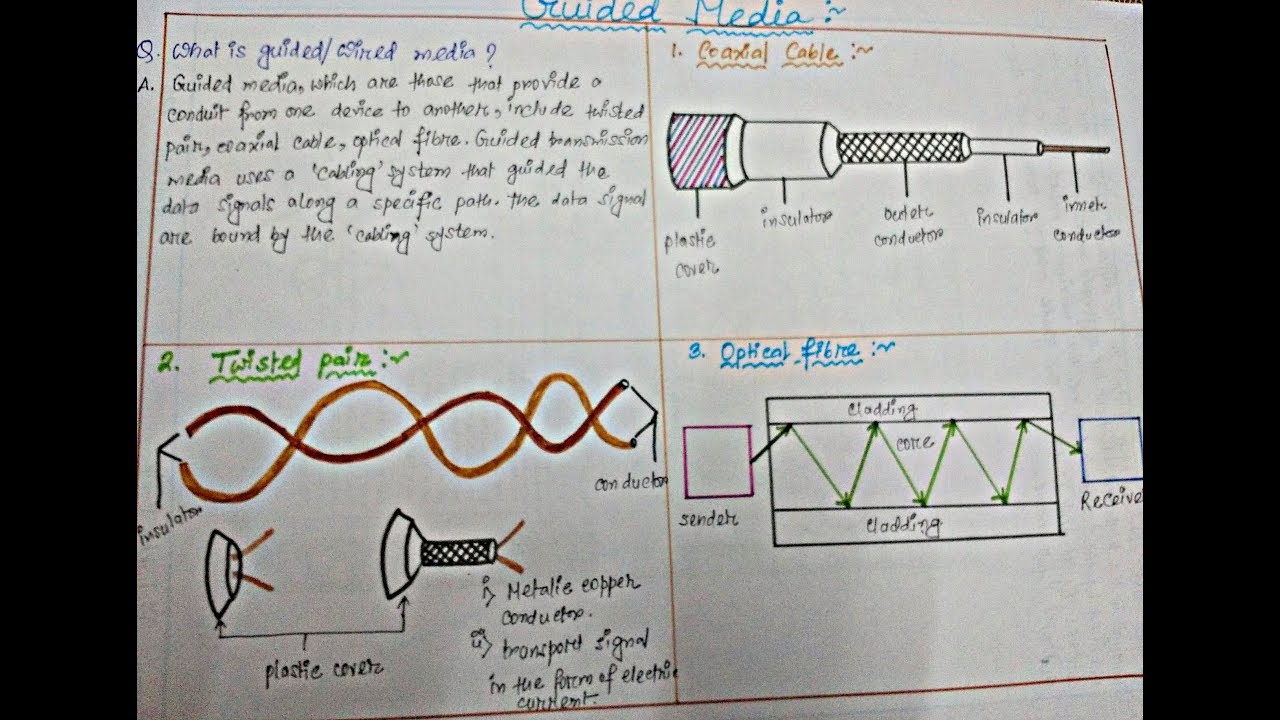 Guided Media :~
Q. What is guided/wired media?
A. Guided media, which are those that provide a
conduit from one device to another, include twisted
pair, coaxial cable, optical fibre. Guided transmission
media uses a 'cabling' system that guided the
data signals along a specific path. The data signal
are bound by the 'cabling' system.
1. Coaxial Cable :~
plastic
cover
insulator
outer
conductor
insulator
inner
conductor
2. Twisted pair :~
insulator
conductor
plastic cover
i) Metalic copper
conductor.
ii) transport signal
in the form of electric
current.
3. Optical fibre :~
cladding
core
cladding
sender
Receive